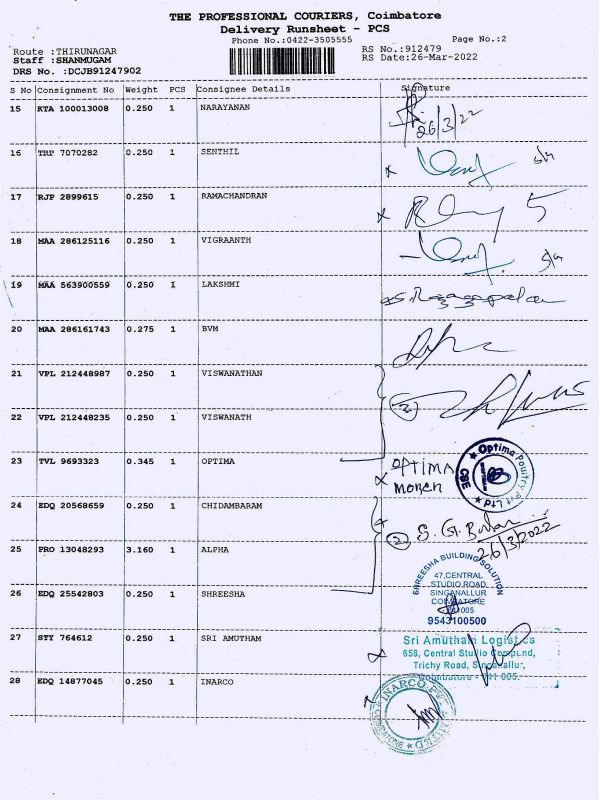 THE PROFESSIONAL COURIERS, Coimbatore
Delivery Runsheet - PCS
Phone No.:0422-3505555 Page No.:2
Route :THIRUNAGAR RS No.:912479
Staff :SHANMUGAM RS Date:26-Mar-2022
DRS No. :DCJB91247902
S No Consignment No Weight PCS Consignee Details Signature
15 KTA 100013008 0.250 1 NARAYANAN
26/3/22
16 TRP 7070282 0.250 1 SENTHIL
17 RJP 2899615 0.250 1 RAMACHANDRAN
18 MAA 286125116 0.250 1 VIGRAANTH
19 MAA 563900559 0.250 1 LAKSHMI
20 MAA 286161743 0.275 1 BVM
21 VPL 212448987 0.250 1 VISWANATHAN
2
22 VPL 212448235 0.250 1 VISWANATH
23 TVL 9693323 0.345 1 OPTIMA OPTIMA
Optima Poultry Pvt Ltd
CBE
24 EDQ 20568659 0.250 1 CHIDAMBARAM
2
26/3/2022
25 PRO 13048293 3.160 1 ALPHA
SHREESHA BUILDING SOLUTION
47,CENTRAL
STUDIO ROAD
SINGANALLUR
COIMBATORE
9543100500
26 EDQ 25542803 0.250 1 SHREESHA
27 STY 764612 0.250 1 SRI AMUTHAM
Sri Amutham Logistics
658, Central Studio Compund,
Trichy Road, Singanallur,
Coimbatore - 641 005.
28 EDQ 14877045 0.250 1 INARCO
INARCO